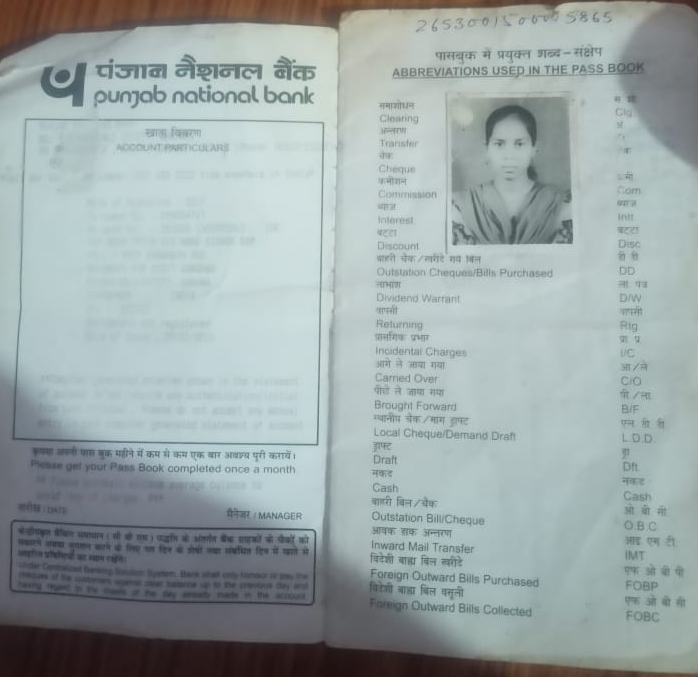 पंजाब नैशनल बैंक
punjab national bank
खाता विवरण
ACCOUNT PARTICULARS
कृपया अपनी पास बुक महीने में कम से कम एक बार अवश्य पूरी करायें।
Please get your Pass Book completed once a month
तारीख / DATE
मैनेजर / MANAGER
Under Centralized Banking Solution System, Bank shall only honour or pay the
cheques of the customers against clear balance up to the previous day and
having regard to the of the day already made in the account
पासबुक में प्रयुक्त शब्द-संक्षेप
ABBREVIATIONS USED IN THE PASS BOOK
समाशोधन
Clearing Clg
अन्तरण अ
Transfer
चेक
Cheque
कमीशन कमी
Commission Com
ब्याज ब्याज
Interest Intt
बट्टा बट्टा
Discount Disc
बाहरी चेक/खरीदे गये बिल डी डी
Outstation Cheques/Bills Purchased DD
लाभांश ला. पत्र
Dividend Warrant D/W
वापसी वापसी
Returning Rtg
प्रासंगिक प्रभार प्रा. प्र.
Incidental Charges I/C
आगे ले जाया गया आ/ले
Carried Over C/O
पीछे ले जाया गया पी/ला
Brought Forward B/F
स्थानीय चेक/मांग ड्राफ्ट एल डी डी
Local Cheque/Demand Draft L.D.D.
ड्राफ्ट ड्रा
Draft Dft.
नकद नकद
Cash Cash
बाहरी बिल/चैक ओ बी सी
Outstation Bill/Cheque O.B.C.
आवक डाक अन्तरण आइ एम टी
Inward Mail Transfer IMT
विदेशी बाह्य बिल खरीदे एफ ओ बी पी
Foreign Outward Bills Purchased FOBP
विदेशी बाह्य बिल वसूली एफ ओ बी सी
Foreign Outward Bills Collected FOBC